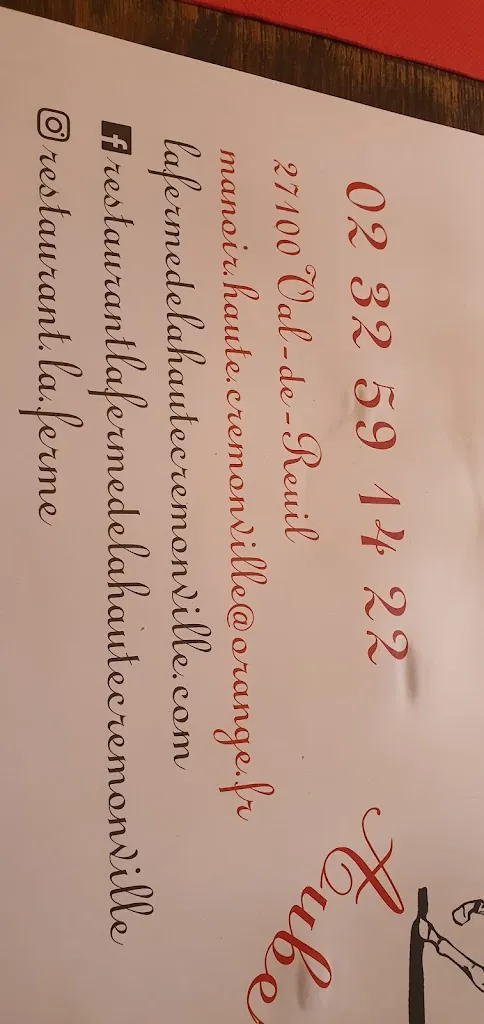 02 32 59 14 22
27100 Val-de-Reuil
manoir.haute.cremonville@orange.fr
lafermedelahautecremonville.com
restaurantlafermedelahautecremonville
restaurant.la.ferme